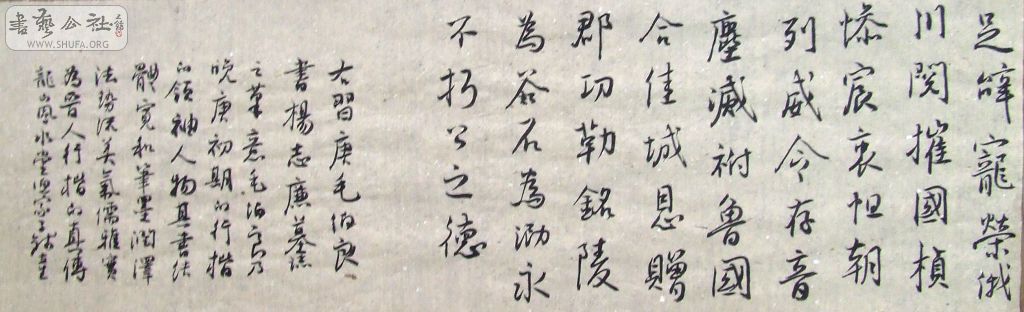 足辭寵榮俄
川閱摧國楨
慘宸衷怛朝
列威令存音
塵滅祔魯國
合佳城恩贈
郡功勒銘陵
為谷石為泐永
不朽公之德
右習庚毛伯良
書楊志廉墓誌
之筆意毛伯良乃
晚唐初期的行楷
的領袖人物其書法
體寬和筆墨潤澤
法勢洪美氣儒雅實
為晉人行楷的真傳
龍嵐水堂
書藝公社
WWW.SHUFA.ORG